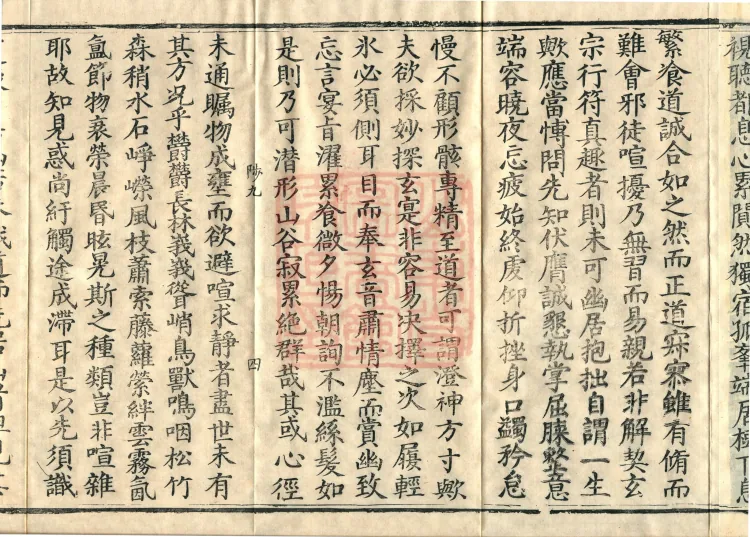 視聽都息心累闃然獨宿孤峯端居樹下息
繁飡道誠合如之然而正道寂寥雖有脩而
難會邪徒喧擾乃無習而易親若非解契玄
宗行符真趣者則未可幽居抱拙自謂一生
歟應當博問先知伏膺誠懇執掌屈膝整意
端容曉夜忘疲始終虔仰折挫身口蠲矜怠
慢不顧形骸專精至道者可謂澄神方寸歟
夫欲採妙探玄寔非容易决擇之次如履輕
氷必須側耳目而奉玄音肅情塵而賞幽致
忘言宴旨濯累飡微夕惕朝詢不濫絲髮如
是則乃可潜形山谷寂累絶群哉其或心徑
陽九 四
未通矚物成壅而欲避喧求静者盡世未有
其方况乎欝欝長林峩峩聳峭鳥獸鳴咽松竹
森梢水石崢嶸風枝蕭索藤蘿縈絆雲霧氤
氳節物衰榮晨昬眩晃斯之種類豈非喧雜
耶故知見惑尚紆觸途成滯耳是以先須識